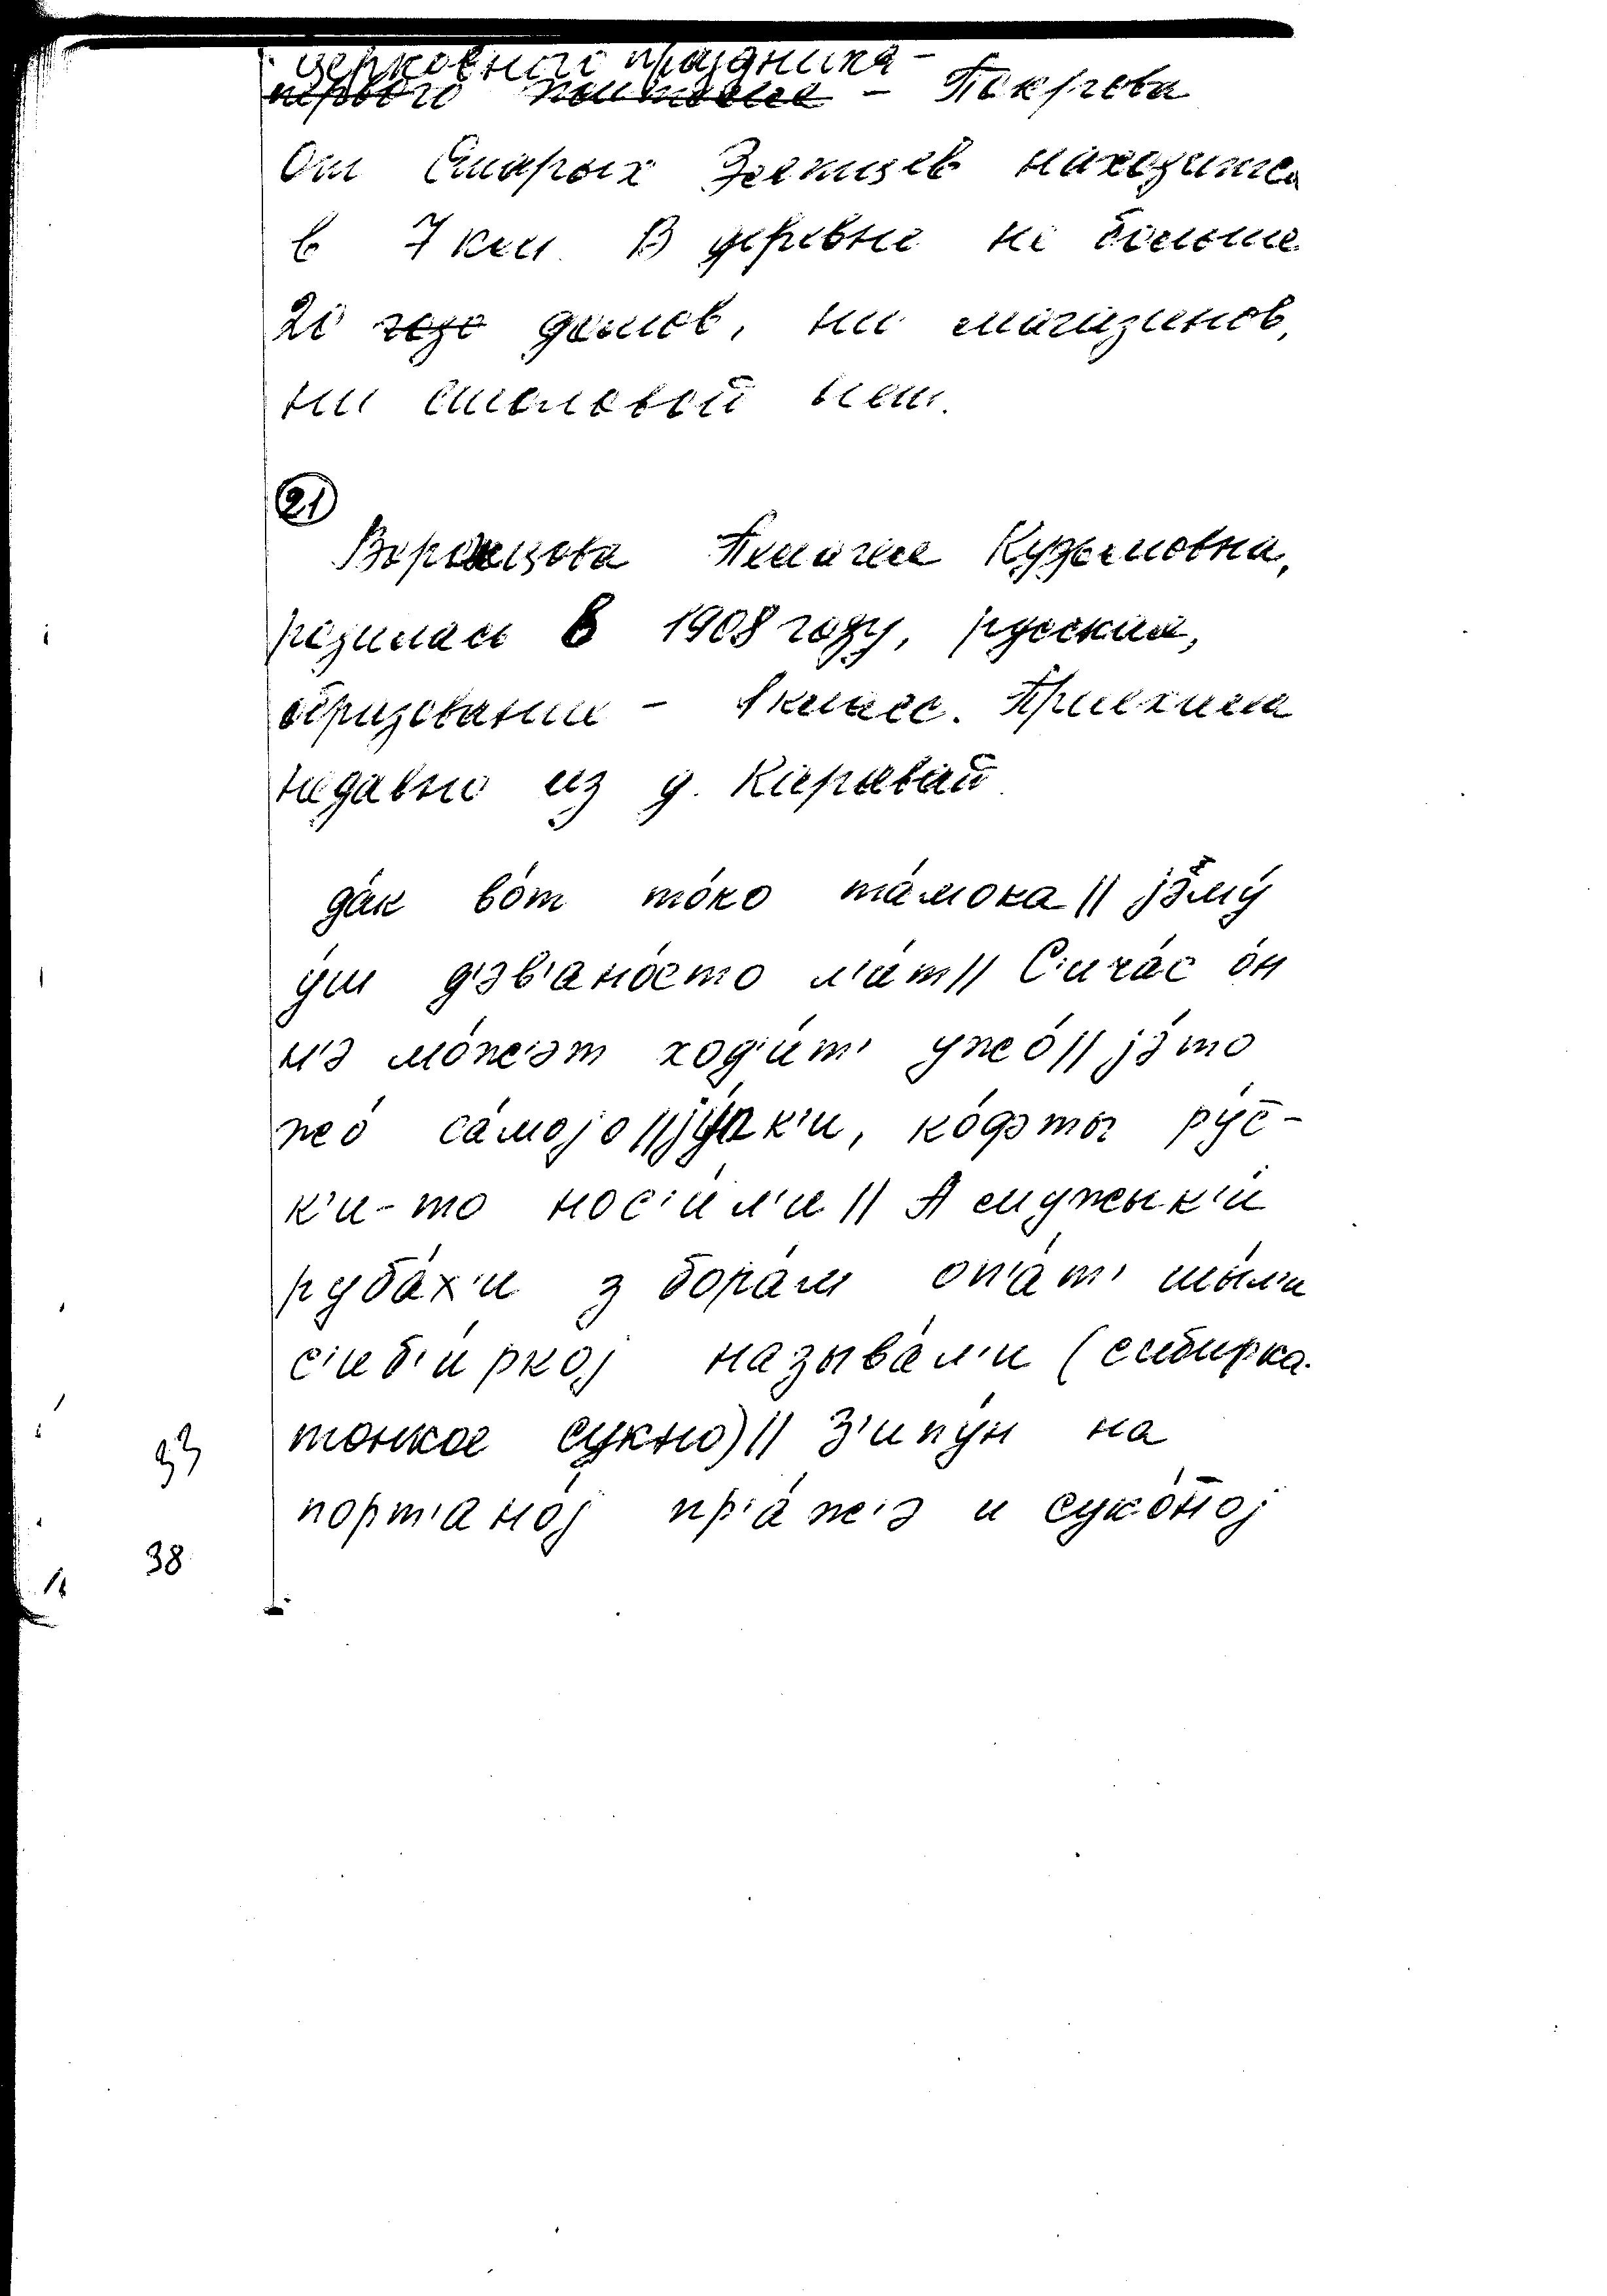 церковного праздника –
первого поитоеие – Покрова
От Старых Зятцев находится
в 7 км. В деревне не больше
20 годо домов, ни магазинов,
ни столовой нет.
21
Воронцова Пелагея Кузьмовна,
родилась в 1908 году, русская,
образование – 1 класс. Приехала
недавно из д. Каравай.
да́к во́т то́ко та́мока // јэму́
у́ш д'эв'ано́сто л'а́т // С'ича́с о́н
н'э мо́ж'эт ход'и́т' ужо́ // јэ́то
жо́ са́мојо // јýпк'и, ко́фты ру́с̄-
к'и-то нос'и́л'и // А мужык'и́
руба́х'и з бора́м оп'а́т' шы́л'и
с'иб'и́ркој называ́л'и (сибирка-
тонкое сукно) // З'ипу́н на
порт'ано́ј пр'а́ж'э и суко́н̄ој
33
38